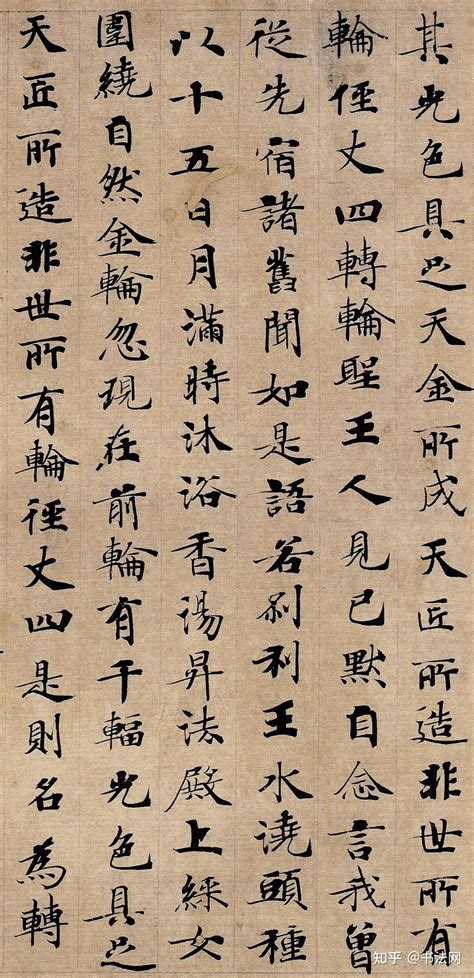 其光色具足天金所成天匠所造非世所有
輪徑丈四轉輪聖王人見已默自念言我曾
從先宿諸舊聞如是語若剎利王水澆頭種
以十五日月滿時沐浴香湯昇法殿上綵女
圍繞自然金輪忽現在前輪有千輻光色具足
天匠所造非世所有輪徑丈四是則名為轉
知乎 @书法网